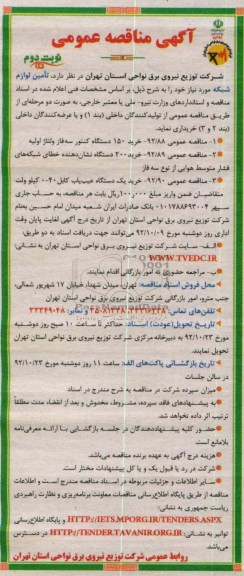 آگهی مناقصه عمومی
نوبت دوم
شرکت توزیع نیروی برق نواحی استان تهران در نظر دارد، تأمین لوازم
شبکه مورد نیاز خود را به شرح ذیل، بر اساس مشخصات فنی اعلام شده در اسناد
مناقصه و استانداردهای وزارت نیرو- ملی یا معتبر خارجی، به صورت دو مرحله‌ای از
طریق مناقصه عمومی از تولیدکنندگان داخلی (بند ۱) و یا عرضه‌کنندگان داخلی
(بند ۲ و ۳) خریداری نماید.
۱- مناقصه عمومی ۹۲/۸۸- خرید ۱۵۰ دستگاه کنتور سه‌فاز ولتاژ اولیه
۲- مناقصه عمومی ۹۲/۸۹- خرید ۳۰۰ دستگاه نشان‌دهنده خطای شبکه‌های
فشار متوسط هوایی از نوع سه فاز
۳- مناقصه عمومی ۹۲/۹۰- خرید یک دستگاه عیب‌یاب کابل ۴۰-۰ کیلو ولت
متقاضیان ضمن واریز مبلغ ۱۰۰,۰۰۰ ریال بابت هر مناقصه، به حساب جاری
سپهر ۰۱۰۱۷۸۸۶۹۳۰۰۴ بانک صادرات ایران شعبه میدان امام حسین بنام
شرکت توزیع نیروی برق نواحی استان تهران از تاریخ درج آگهی لغایت پایان وقت
اداری روز دوشنبه مورخ ۹۲/۱۰/۰۹ می‌توانند جهت دریافت اسناد به دو طریق:
الف- سایت شرکت توزیع نیروی برق نواحی استان تهران به نشانی:
WWW.TVEDC.IR
ب- مراجعه حضوری به امور بازرگانی اقدام نمایند.
محل فروش اسناد مناقصه: تهران، میدان شهدا، خیابان ۱۷ شهریور شمالی،
جنب مترو، امور بازرگانی شرکت توزیع نیروی برق نواحی استان تهران
تاریخ تحویل(عودت) اسناد: حداکثر تا ساعت ۱۰ صبح روز دوشنبه
مورخ ۹۲/۱۰/۲۳ به دبیرخانه مرکزی شرکت توزیع نیروی برق نواحی استان تهران
تحویل نمایند.
تاریخ بازگشائی پاکت‌های الف: ساعت ۱۱ روز دوشنبه مورخ ۹۲/۱۰/۲۳
در سالن جلسات
میزان سپرده شرکت در مناقصه به شرح مندرج در اسناد
به پیشنهادهای فاقد سپرده، مشروط، مخدوش و بعد از انقضاء مدت مطلقاً
ترتیب اثر داده نخواهد شد.
حضور کلیه پیشنهاددهندگان در جلسه بازگشایی با ارائه معرفی‌نامه
بلامانع است
هزینه درج آگهی به عهده برنده مناقصه می‌باشد.
شرکت در رد یا قبول یک و یا کل پیشنهادات مختار است.
سایر اطلاعات و جزئیات مربوطه در اسناد مناقصه مندرج است و اطلاعات
مناقصه از طریق پایگاه اطلاع‌رسانی مناقصات معاونت برنامه‌ریزی و نظارت راهبردی
ریاست جمهوری به نشانی:
HTTP://IETS.MPORG.IR/TENDERS.ASPX و پایگاه اطلاع‌رسانی
توانیر به نشانی: HTTP://TENDER.TAVANIR.ORG.IR در دسترس
می‌باشد.
روابط عمومی شرکت توزیع نیروی برق نواحی استان تهران